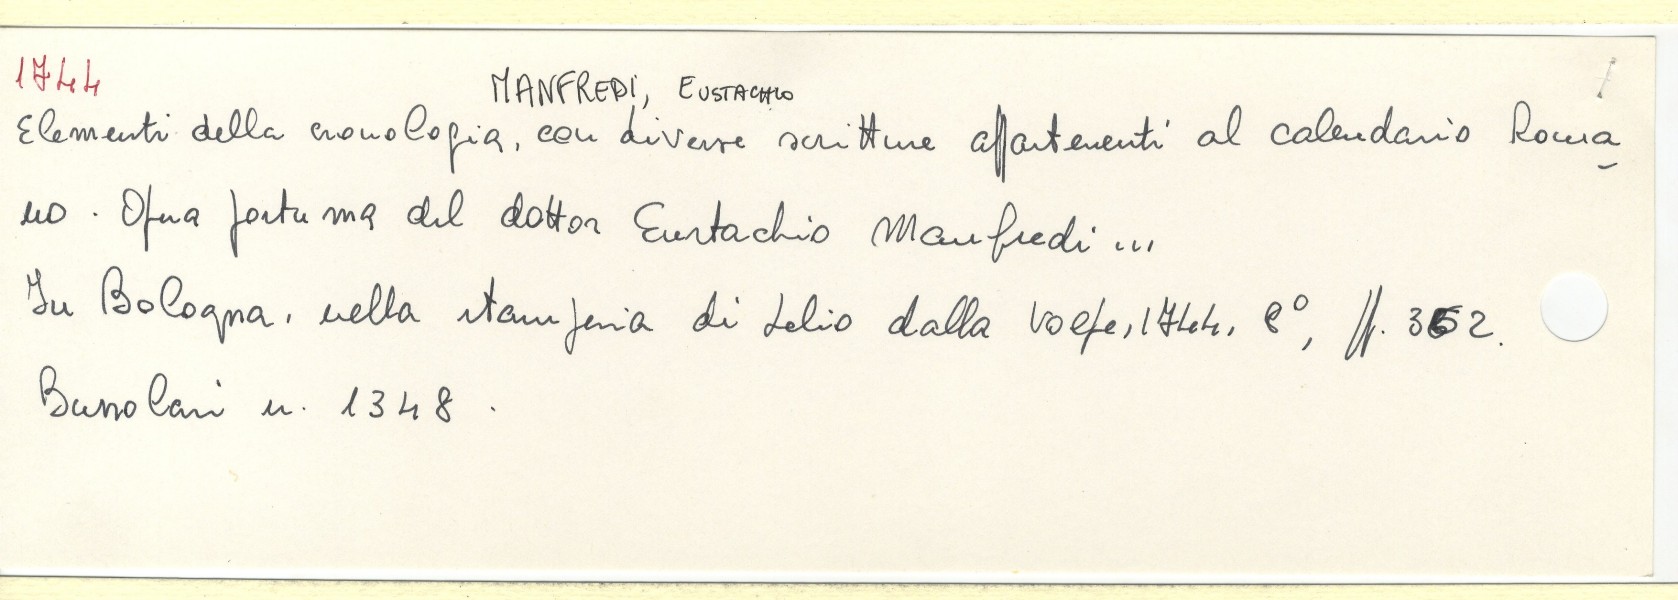 1744
MANFREDI, EUSTACHIO
Elementi della cronologia, con diverse scritture appartenenti al calendario Roma
no. Opera postuma del dottor Eustachio Manfredi...
In Bologna, nella stamperia di Lelio dalla Volpe, 1744, 8°, pp. 362.
Bussolari n. 1348.